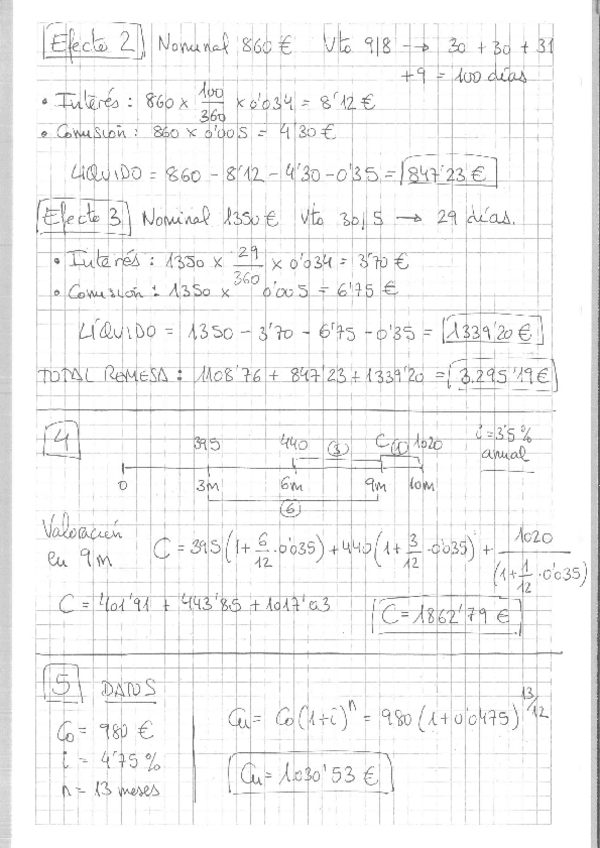 Efecto 2 Nominal 860 € Vto 9/8 → 30 + 30 + 31
+9 = 100 días
• Interés: 860 x 100/360 x 0'034 = 8'12 €
• Comisión: 860 x 0'005 = 4'30 €
LÍQUIDO = 860 - 8'12 - 4'30 - 0'35 = 847'23 €
Efecto 3 Nominal 1350 € Vto 30/5 → 29 días.
• Interés: 1350 x 29/360 x 0'034 = 3'70 €
• Comisión: 1350 x 0'005 = 6'75 €
LÍQUIDO = 1350 - 3'70 - 6'75 - 0'35 = 1339'20 €
TOTAL REMESA: 1108'76 + 847'23 + 1339'20 = 3.295'19 €
4 395 440 (3) C (1) 1020 i = 3'5 %
anual
0 3m 6m 9m 10m
(6)
Valoración
en 9m C = 395(1+6/12·0'035) + 440(1+3/12·0'035) + 1020/(1+1/12·0'035)
C = 401'91 + 443'85 + 1017'03 C = 1862'79 €
5 DATOS
Co = 980 € Cn = Co(1+i)^n = 980(1+0'0475)^13/12
i = 4'75 %
n = 13 meses Cn = 1.030'53 €